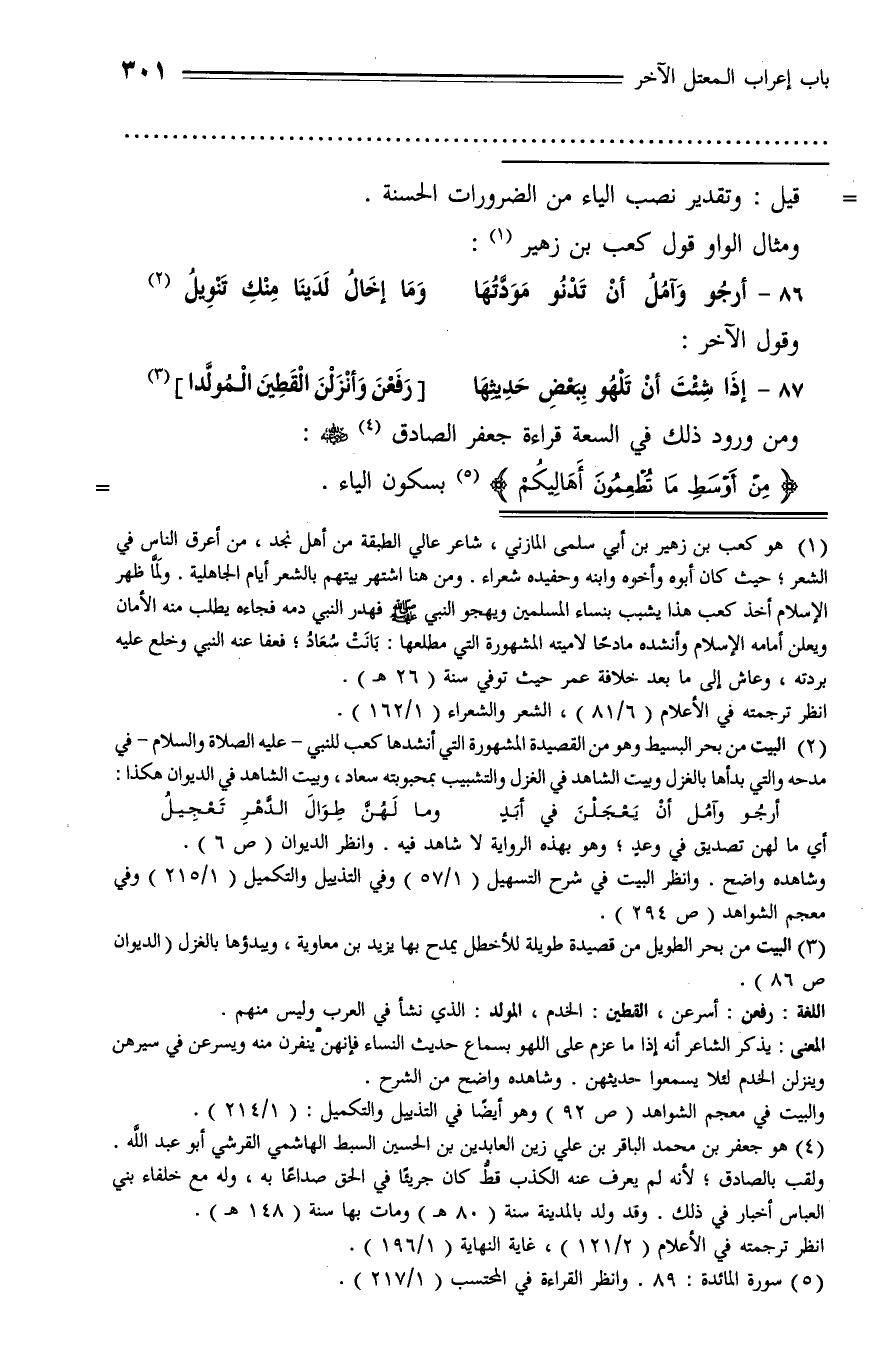 باب إعراب المعتل الآخر ٣٠١
= قيل : وتقدير نصب الياء من الضرورات الحسنة .
ومثال الواو قول كعب بن زهير (١) :
٨٦ - أرجُو وَآمُلُ أنْ تَدْنُو مَوَدَّتُهَا وَمَا إخَالُ لَدَينَا مِنْكِ تَنْوِيلُ (٢)
وقول الآخر :
٨٧ - إذَا شِئْتَ أنْ تَلْهُو بِبَعْضِ حَدِيثِهَا [ رَفَعْنَ وَأنْزَلْنَ الْقَطِينَ الْـمُولَّدا ] (٣)
ومن ورود ذلك في السعة قراءة جعفر الصادق (٤) ﵁ :
﴿ مِنْ أَوْسَطِ مَا تُطْعِمُونَ أَهَالِيكُمْ ﴾ (٥) بسكون الياء . =
(١) هو كعب بن زهير بن أبي سلمى المازني ، شاعر عالي الطبقة من أهل نجد ، من أعرق الناس في
الشعر ؛ حيث كان أبوه وأخوه وابنه وحفيده شعراء . ومن هنا اشتهر بيتهم بالشعر أيام الجاهلية . ولَمَّا ظهر
الإسلام أخذ كعب هذا يشبب بنساء المسلمين ويهجو النبي ﷺ فهدر النبي دمه فجاءه يطلب منه الأمان
ويعلن أمامه الإسلام وأنشده مادحًا لاميته المشهورة التي مطلعها : بَانَتْ سُعَادُ ؛ فعفا عنه النبي وخلع عليه
بردته ، وعاش إلى ما بعد خلافة عمر حيث توفي سنة ( ٢٦ هـ ) .
انظر ترجمته في الأعلام ( ٨١/٦ ) ، الشعر والشعراء ( ١٦٢/١ ) .
(٢) البيت من بحر البسيط وهو من القصيدة المشهورة التي أنشدها كعب للنبي - عليه الصلاة والسلام - في
مدحه والتي بدأها بالغزل وبيت الشاهد في الغزل والتشبيب بمحبوبته سعاد ، وبيت الشاهد في الديوان هكذا :
أرجُـو وآمُـل أنْ يَـعْـجَلْـنَ في أبَـدٍ ومـا لَـهُـنَّ طِـوَالَ الـدَّهْـرِ تَـعْـجِـيـلُ
أي ما لهن تصديق في وعدٍ ؛ وهو بهذه الرواية لا شاهد فيه . وانظر الديوان ( ص ٦ ) .
وشاهده واضح . وانظر البيت في شرح التسهيل ( ٥٧/١ ) وفي التذييل والتكميل ( ٢١٥/١ ) وفي
معجم الشواهد ( ص ٢٩٤ ) .
(٣) البيت من بحر الطويل من قصيدة طويلة للأخطل يمدح بها يزيد بن معاوية ، ويبدؤها بالغزل ( الديوان
ص ٨٦ ) .
اللغة : رفعن : أسرعن ، القطين : الخدم ، المولد : الذي نشأ في العرب وليس منهم .
المعنى : يذكر الشاعر أنه إذا ما عزم على اللهو بسماع حديث النساء فإنهن ينفرن منه ويسرعن في سيرهن
وينزلن الخدم لئلا يسمعوا حديثهن . وشاهده واضح من الشرح .
والبيت في معجم الشواهد ( ص ٩٢ ) وهو أيضًا في التذييل والتكميل : ( ٢١٤/١ ) .
(٤) هو جعفر بن محمد الباقر بن علي زين العابدين بن الحسين السبط الهاشمي القرشي أبو عبد اللَّه .
ولقب بالصادق ؛ لأنه لم يعرف عنه الكذب قطُّ كان جريئًا في الحق صداعًا به ، وله مع خلفاء بني
العباس أخبار في ذلك . وقد ولد بالمدينة سنة ( ٨٠ هـ ) ومات بها سنة ( ١٤٨ هـ ) .
انظر ترجمته في الأعلام ( ١٢١/٢ ) ، غاية النهاية ( ١٩٦/١ ) .
(٥) سورة المائدة : ٨٩ . وانظر القراءة في المحتسب ( ٢١٧/١ ) .